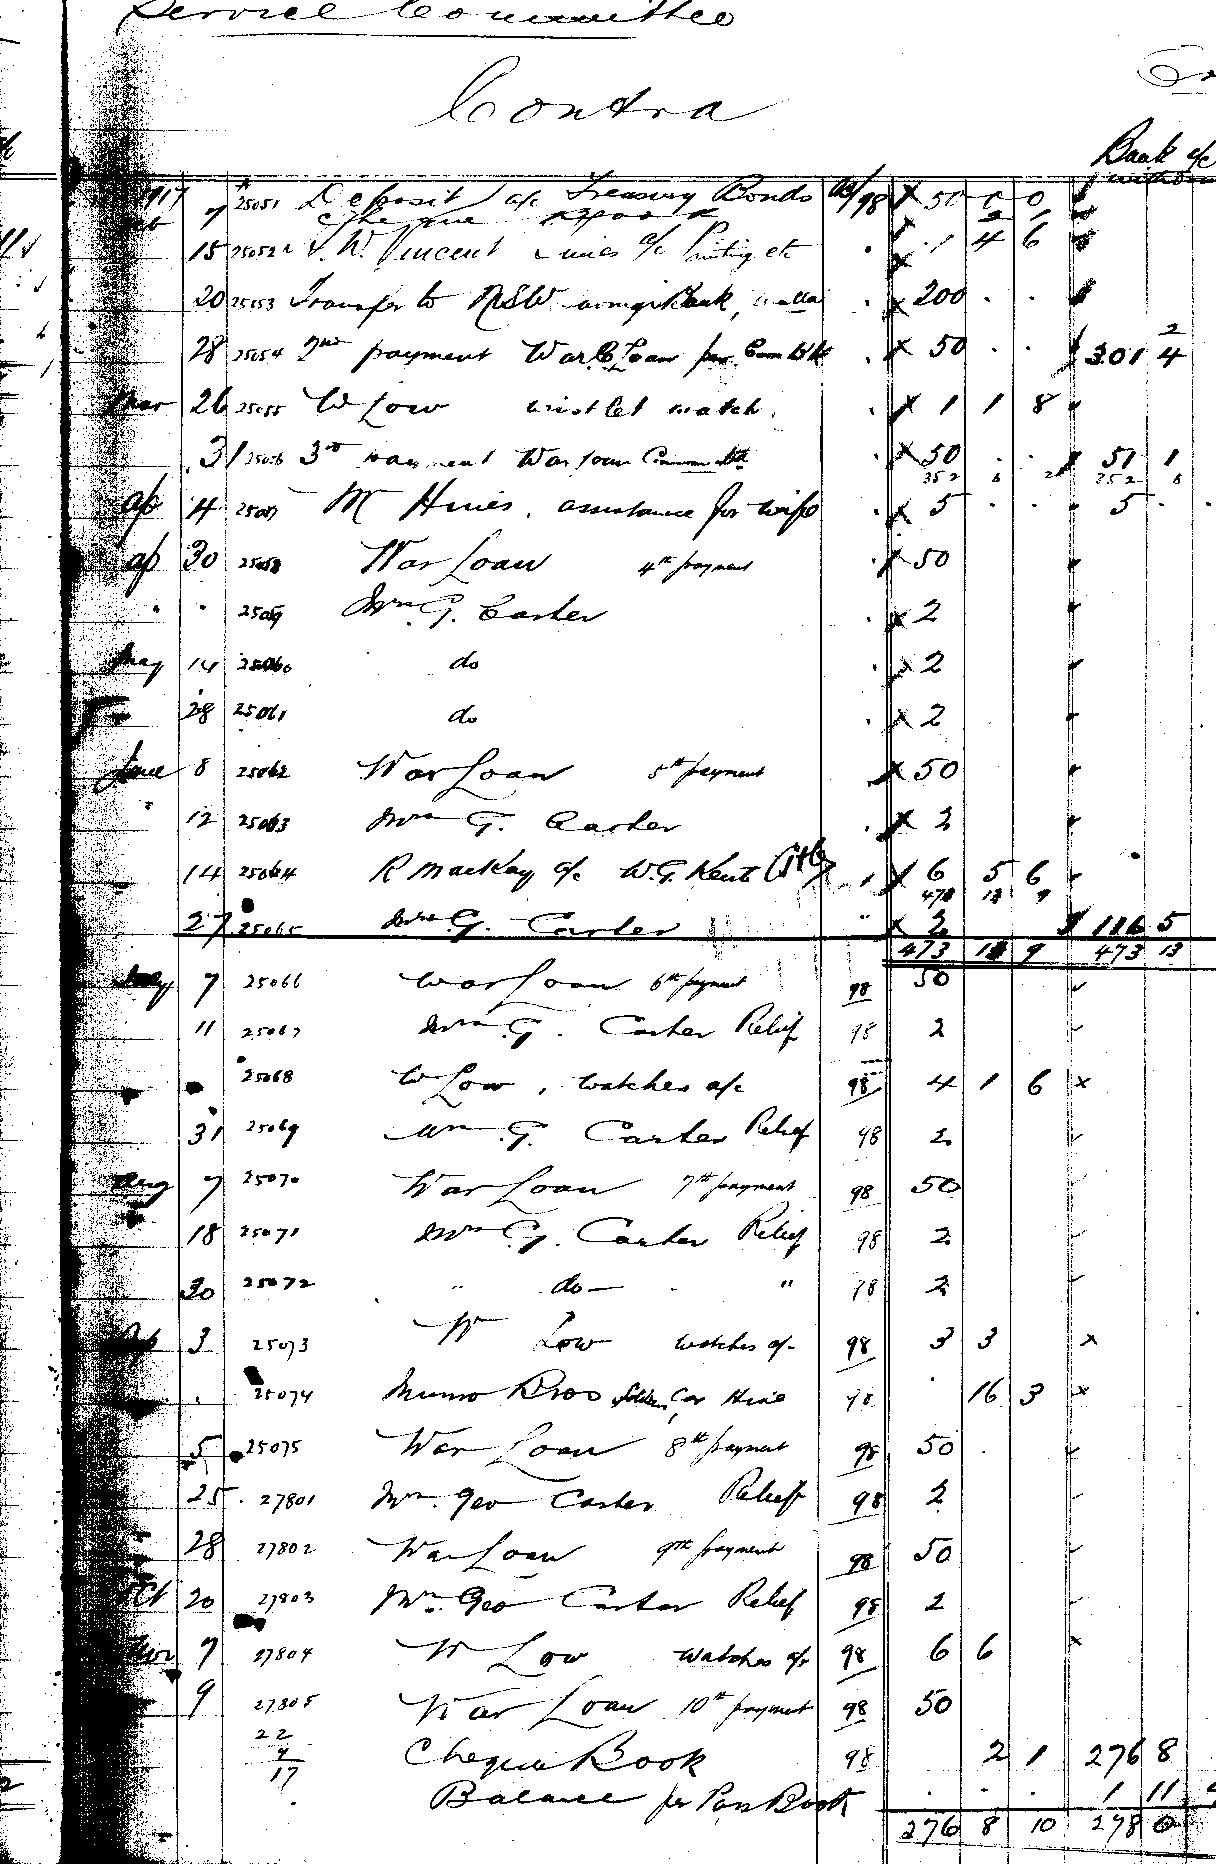 Service Committee
Contra
Bank a/c
1917 7 25051 Deposit a/c Treasury Bonds 98 x 50 0 0
Cheque 2 1
15 25052 Vincent a/c Printing etc . 1 4 6
20 25053 Transfer to NSW Bank, . x 200 . .
28 25054 2nd payment War Loan per . x 50 . . 301 4
Mar 26 25055 W Low wristlet watch . x 1 1 8
31 25056 3rd payment War Loan . x 50 . . 51 1
352 6 352 6
ap 4 25057 M Hines, assistance for wife . x 5 . . 5 .
ap 30 25058 War Loan 4th payment . x 50
" " 25059 Mrs G. Carter . x 2
May 14 25060 do . x 2
28 25061 do . x 2
June 8 25062 War Loan 5th payment x 50
" 12 25063 Mrs G. Carter . x 2
14 25064 R Mackay a/c W.G. Kent x 6 5 6
27 25065 Mrs G. Carter " x 2 116 5
473 13 9 473 13
July 7 25066 War Loan 6th payment 98 50
11 25067 Mrs G. Carter Relief 98 2
25068 W Low, watches a/c 98 4 1 6 x
31 25069 Mrs G. Carter Relief 98 2
Aug 7 25070 War Loan 7th payment 98 50
18 25071 Mrs G. Carter Relief 98 2
30 25072 " do — " 98 2
Sep 3 25073 W Low watches a/c 98 3 3 x
25074 Munro Bros Car Hire 98 16 3 x
5 25075 War Loan 8th payment 98 50
25 27801 Mrs. Geo Carter Relief 98 2
28 27802 War Loan 9th payment 98 50
Oct 20 27803 Mrs. Geo Carter Relief 98 2
Nov 7 27804 W Low watches a/c 98 6 6 x
9 27805 War Loan 10th payment 98 50
22
17
Cheque Book 98 2 1 276 8
Balance per Pass Book . . . 1 11
276 8 10 278 0